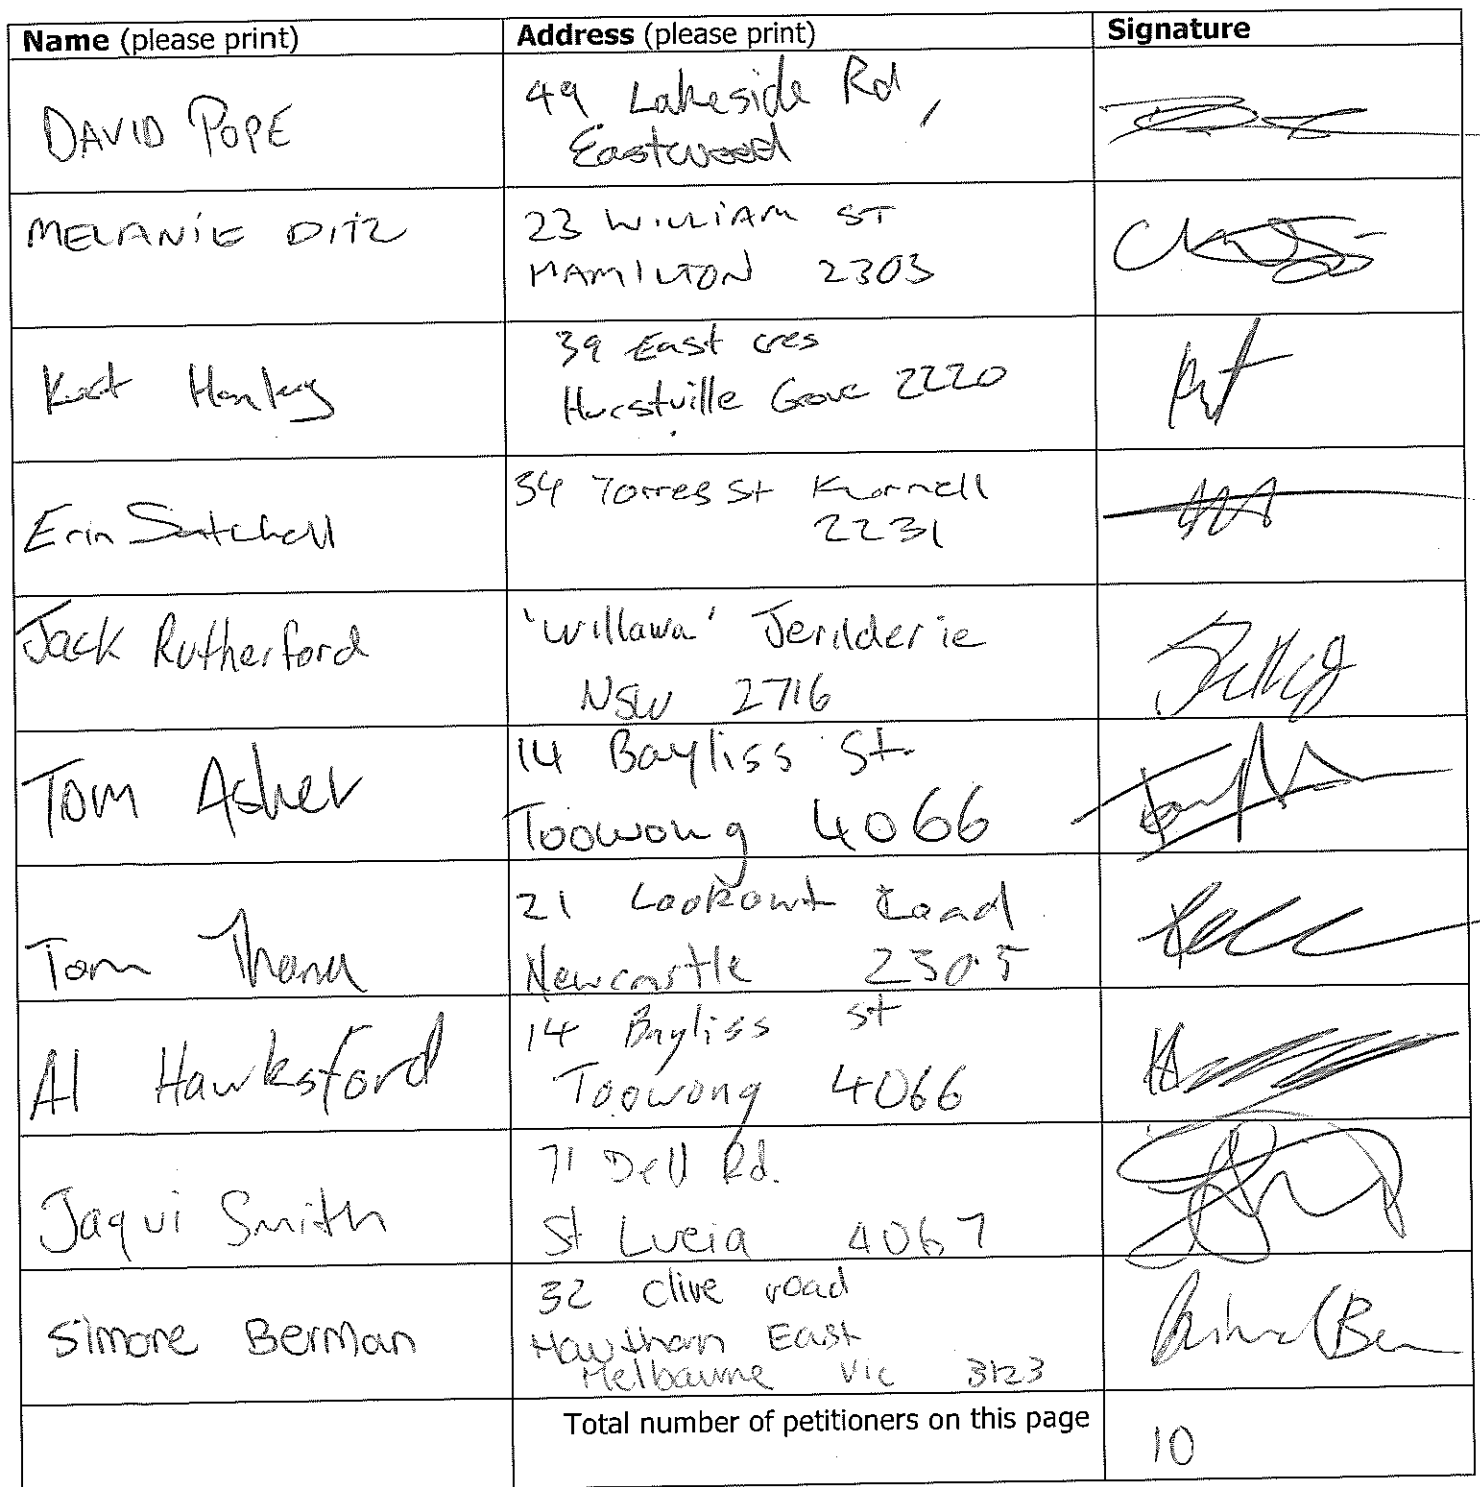 Name (please print) Address (please print) Signature
DAVID POPE
49 Lakeside Rd,
Eastwood
MELANIE DITZ
23 WILLIAM ST
HAMILTON 2303
39 East cres
Hurstville Grove 2220
34 Torres St Kurnell
2231
Erin Satchell
Jack Rutherford
'Willawa' Jerilderie
NSW 2716
Tom Asher
14 Bayliss St.
Toowong 4066
Tom
21 Lookout Road
Newcastle 2305
Al Hawksford
14 Bayliss St
Toowong 4066
Jaqui Smith
71 Dell Rd.
St Lucia 4067
Simone Berman
32 Clive road
Hawthorn East
Melbourne Vic 3123
Total number of petitioners on this page
10